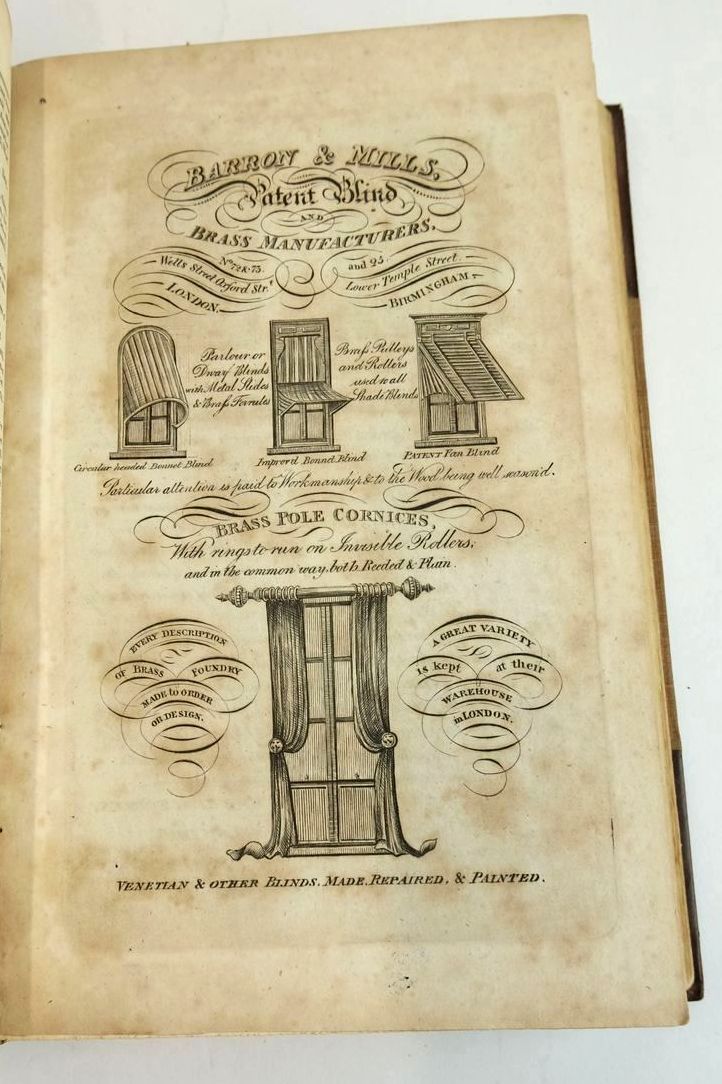 BARRON & MILLS,
Patent Blind
AND
BRASS MANUFACTURERS,
No. 72 & 73.
Wells Street Oxford Strt.
LONDON.
and 25
Lower Temple Street.
BIRMINGHAM
Parlour or
Dway Blinds
with Metal Slides
& Braſs Ferrules
Braſs Pulleys
and Rollers
used to all
Shade Blinds
Circular headed Bonnet Blind
Improv'd Bonnet Blind
PATENT Fan Blind
Particular attention is paid to Workmanship & to the Wood being well season'd.
BRASS POLE CORNICES,
With rings to run on Invisible Rollers,
and in the common way, both Reeded & Plain.
EVERY DESCRIPTION
OF BRASS FOUNDRY
MADE to ORDER
OR DESIGN.
A GREAT VARIETY
is kept at their
WAREHOUSE
in LONDON.
VENETIAN & OTHER BLINDS, MADE, REPAIRED, & PAINTED.